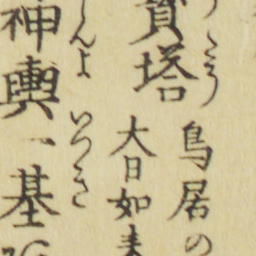 寶塔
鳥居の
大日如来
神輿一基
しんよ
いつき